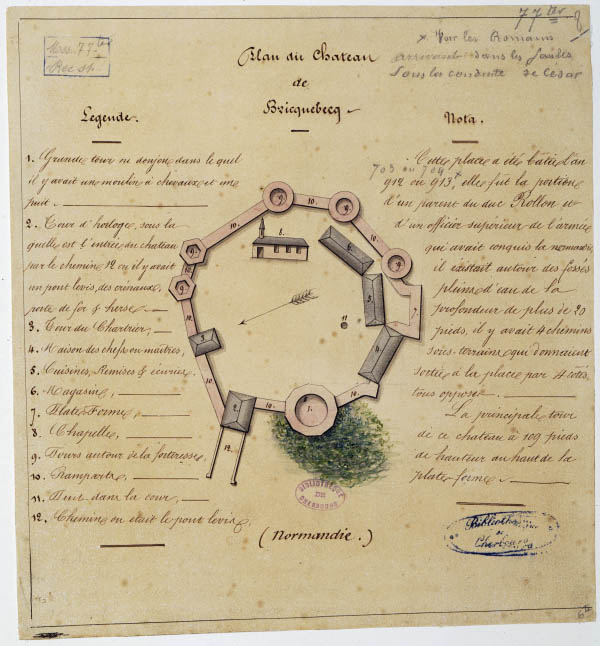 77 ter
Mss. 77 ter
Rec. st.
× Voir les Romains
arrivant dans les Gaules
sous la conduite de César
Plan du Chateau
de
Bricquebecq
Légende.
1. Grande tour ou donjon dans le quel
il y avait un moulin à chevaux et une
puit.
2. Tour d'horloge, sous la
quelle est l'entrée du chateau
par le chemin 12 ou il y avait
un pont levis, des créneaux,
porte de fer & herse
3. Tour du Chartrier,
4. Maison des chefs ou maîtres,
5. Cuisines, Remises & écuries.
6. Magasins,
7. Plate Forme,
8. Chapelle,
9. Tours autour de la forteresse,
10. Remparts,
11. Puit dans la cour,
12. Chemin ou était le pont levis,
Nota.
Cette place a été batie l'an
703 ou 704
912 ou 913,× elle fut la portion
d'un parent du duc Rollon et
d'un officier supérieur de l'armée
qui avait conquis la normandie
il existait autour des fossés
pleins d'eau de la
profondeur de plus de 20
pieds, il y avait 4 chemins
sous-terrains qui donnaient
sortie à la place par 4 cotés
tous opposés.
La principale tour
de ce chateau a 109 pieds
de hauteur au haut de la
plate forme.
9.
9.
10.
10.
8.
6.
9.
9.
12
9.
10.
5.
7.
11
3.
4.
10.
2.
10.
1.
10.
12.
BIBLIOTHÈQUE
DE
CHERBOURG
(Normandie.)
Bibliothèque
de
Cherbourg